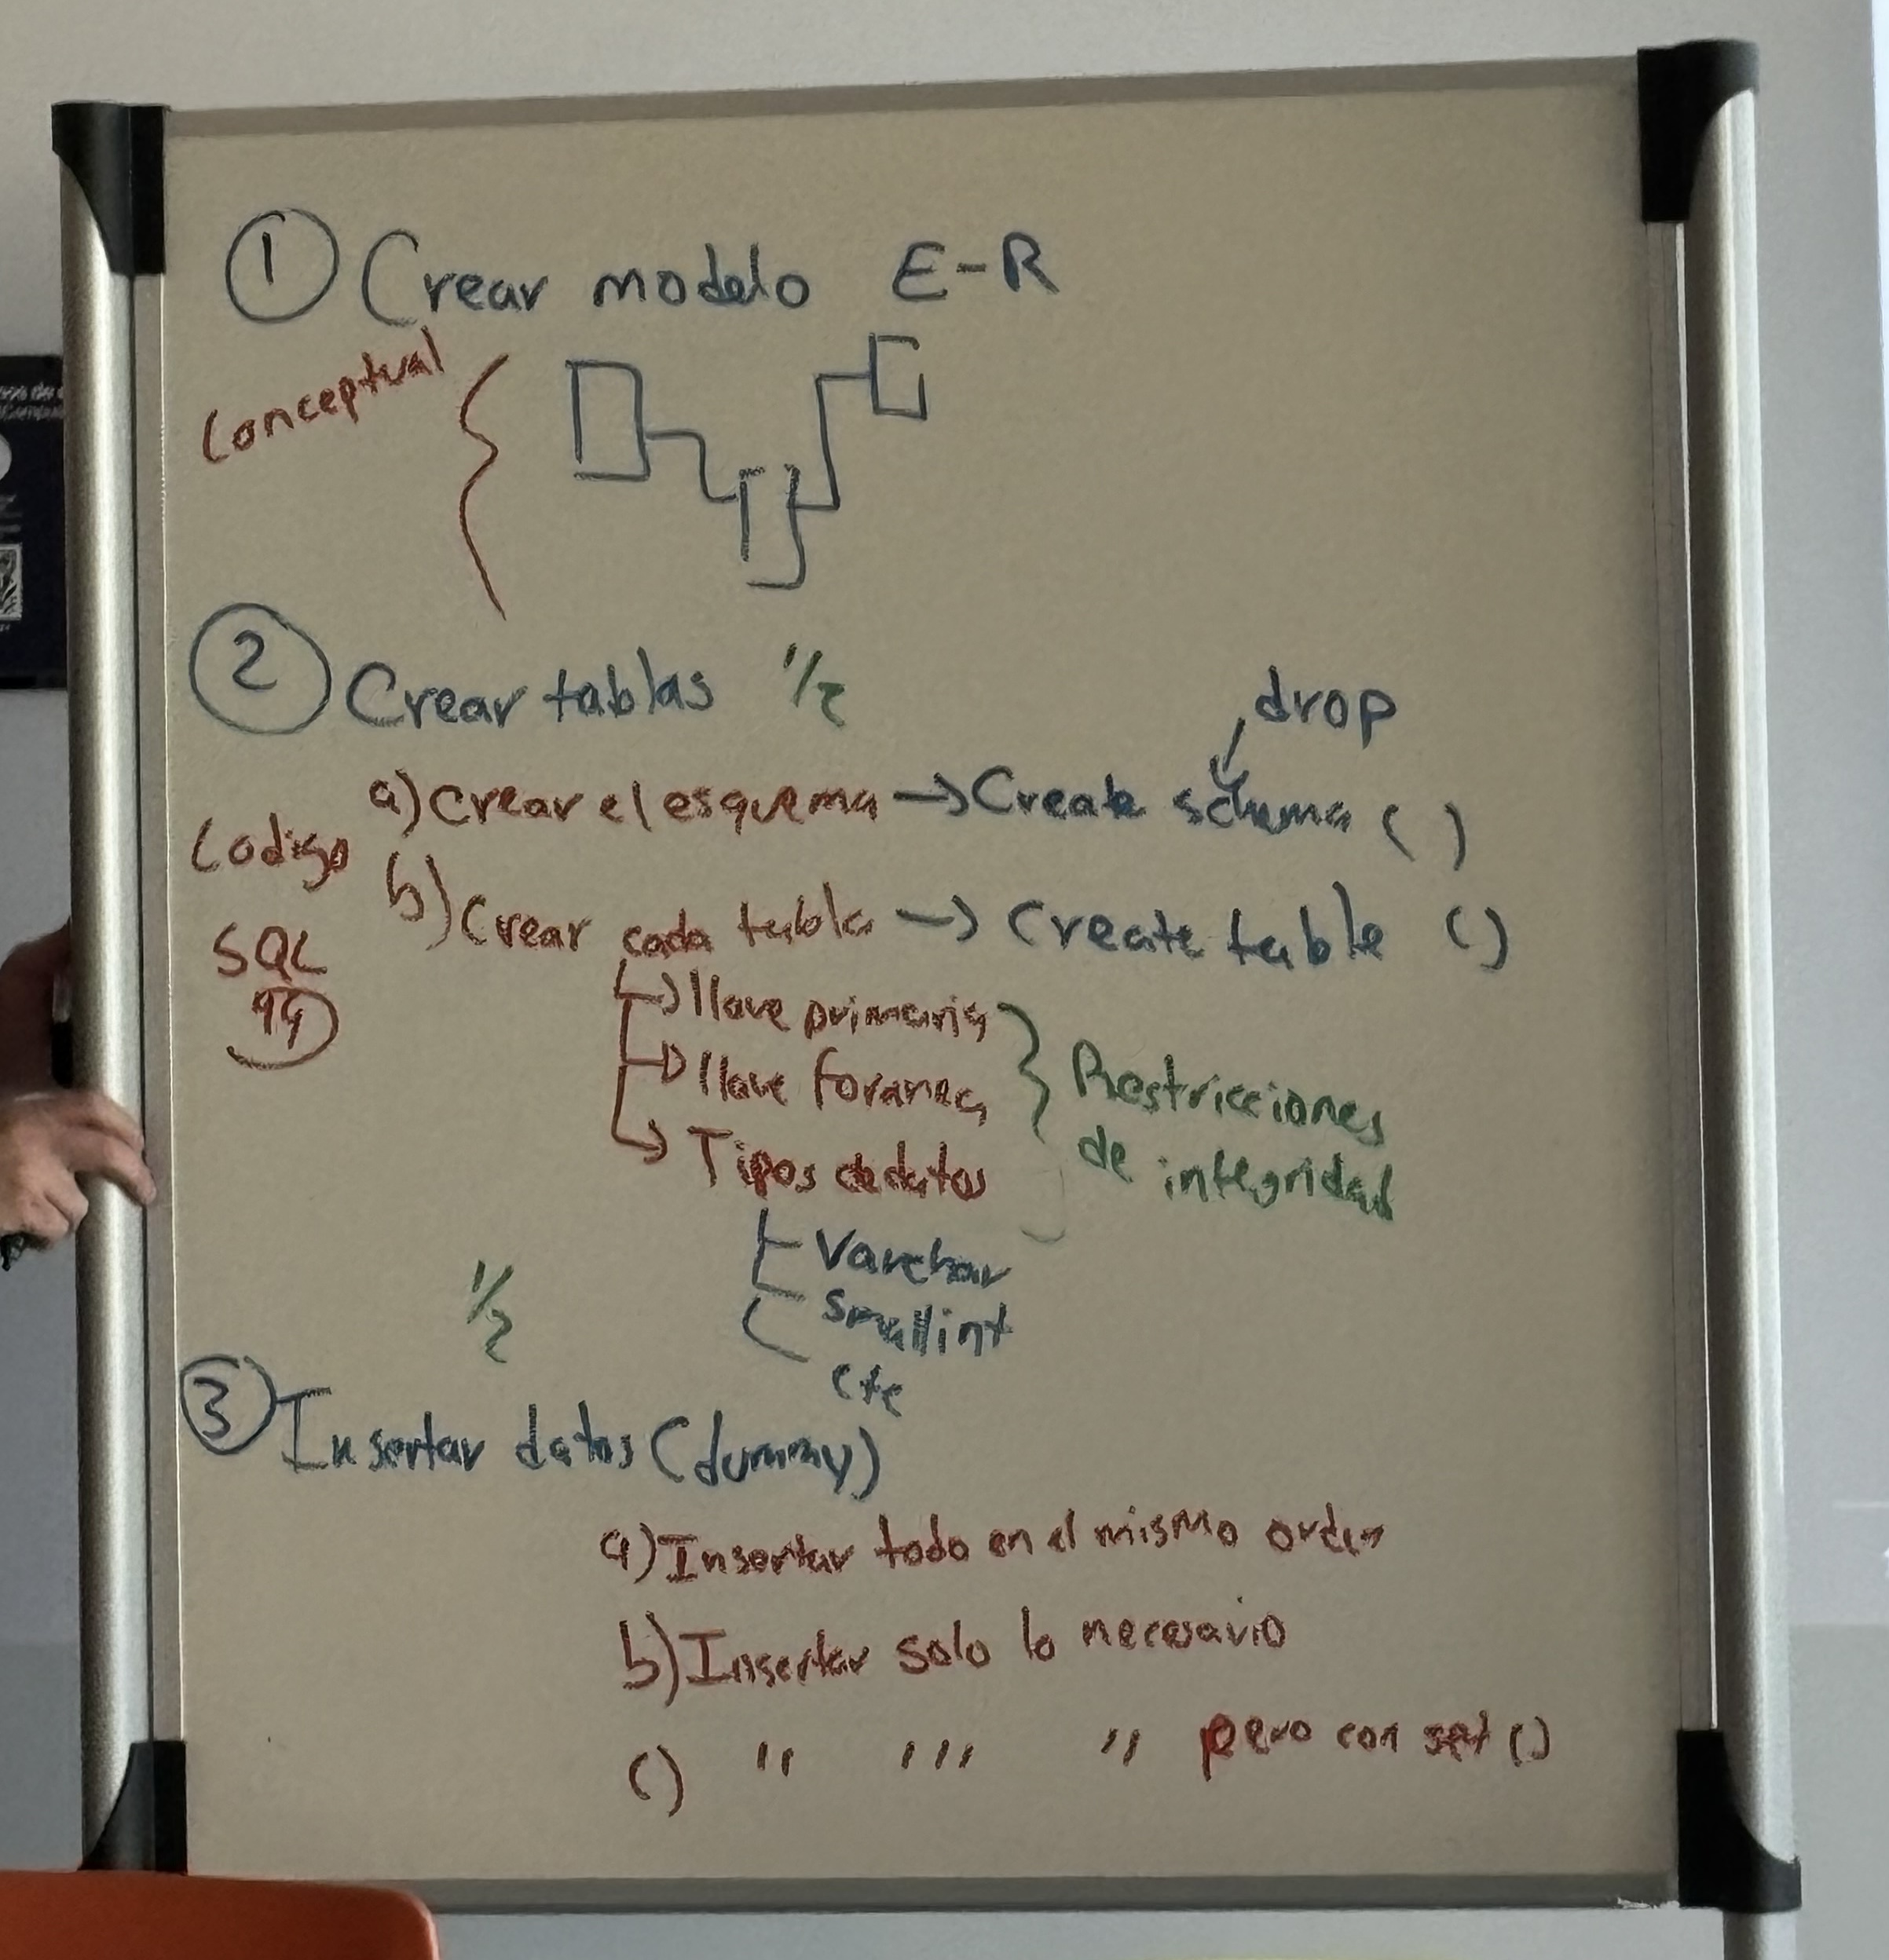 1 Crear modelo E-R
Conceptual
2 Crear tablas 1/2
drop
a) Crear el esquema → Create schema ( )
Codigo
b) Crear cada tabla → Create table ()
SQL
→ llave primaria
→ llave foranea
Restricciones
de integridad
→ Tipos de datos
Varchar
smallint
etc
1/2
3 Insertar datos (dummy)
a) Insertar todo en el mismo orden
b) Insertar solo lo necesario
c) " ''' " pero con set ()